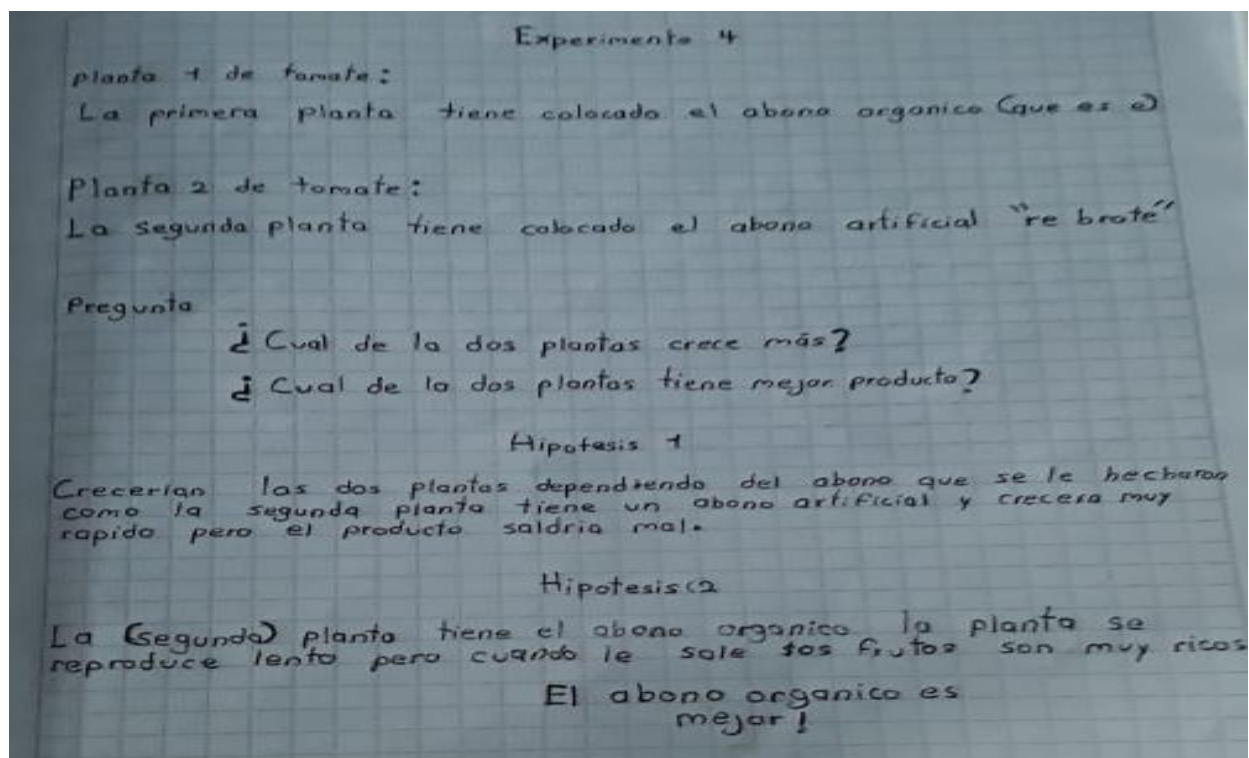 Experimento 4
planta 1 de tomate:
La primera planta tiene colocado el abono organico (que es e)
Planta 2 de tomate:
La segunda planta tiene colocado el abono artificial "re brote"
Pregunta
¿Cual de la dos plantas crece más?
¿Cual de la dos plantas tiene mejor producto?
Hipotesis 1
Crecerian las dos plantas dependiendo del abono que se le hecharon
como la segunda planta tiene un abono artificial y crecera muy
rapido pero el producto saldria mal.
Hipotesis 2
La (segunda) planta tiene el abono organico la planta se
reproduce lento pero cuando le sale sos frutos son muy ricos
El abono organico es
mejor!